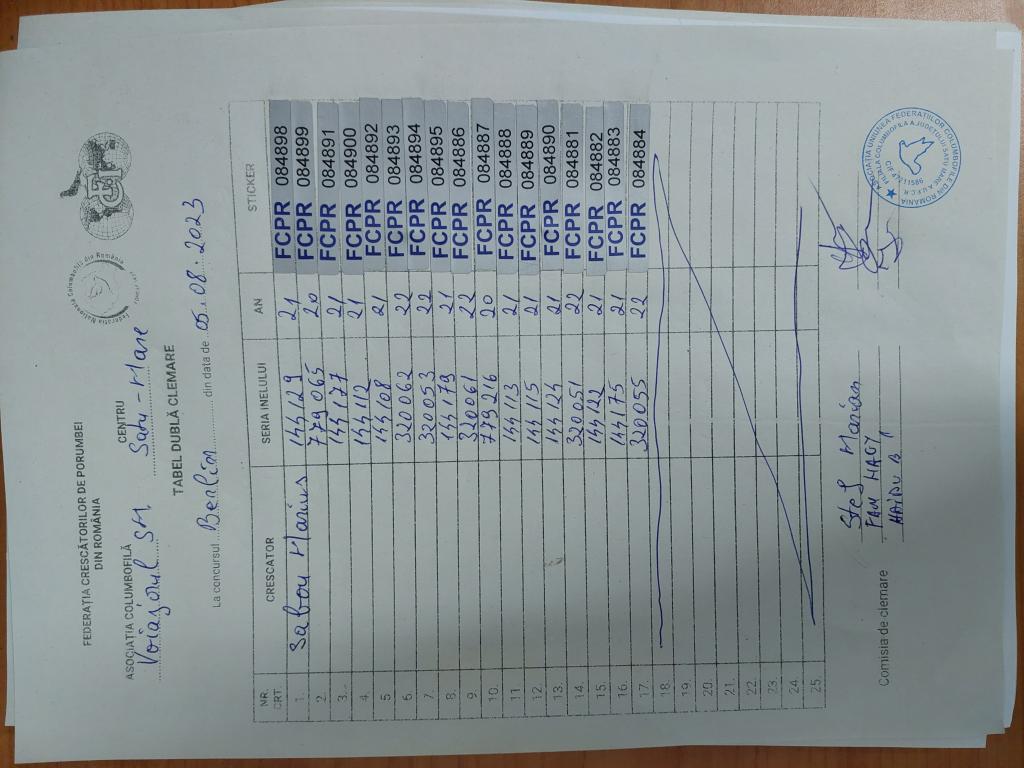 FEDERAȚIA CRESCĂTORILOR DE PORUMBEI
DIN ROMÂNIA
Federația Națională Columbofilă din România
ASOCIAȚIA COLUMBOFILĂ CENTRU
Voiajorul SM Satu-Mare
TABEL DUBLĂ CLEMARE
La concursul Berlin din data de 05.08.2023
NR. CRT CRESCATOR SERIA INELULUI AN STICKER
1. Sabou Marius 144129 21 FCPR 084898
2. 779065 20 FCPR 084899
3. 144177 21 FCPR 084891
4. 144112 21 FCPR 084900
5 144108 21 FCPR 084892
6. 320062 22 FCPR 084893
7. 320053 22 FCPR 084894
8. 144179 21 FCPR 084895
9. 320061 22 FCPR 084886
10. 779216 20 FCPR 084887
11. 144113 21 FCPR 084888
12. 144115 21 FCPR 084889
13. 144124 21 FCPR 084890
14. 320051 22 FCPR 084881
15. 144122 21 FCPR 084882
16. 144175 21 FCPR 084883
17. 320055 22 FCPR 084884
18.
19.
20.
21.
22.
23.
24.
25.
Comisia de clemare
Marian
HAIDU B
ASOCIAȚIA UNIUNEA FEDERAȚIILOR COLUMBOFILE DIN ROMANIA
FILIALA COLUMBOFILA A JUDEȚULUI SATU MARE A U.F.C.R.
CIF 47211586